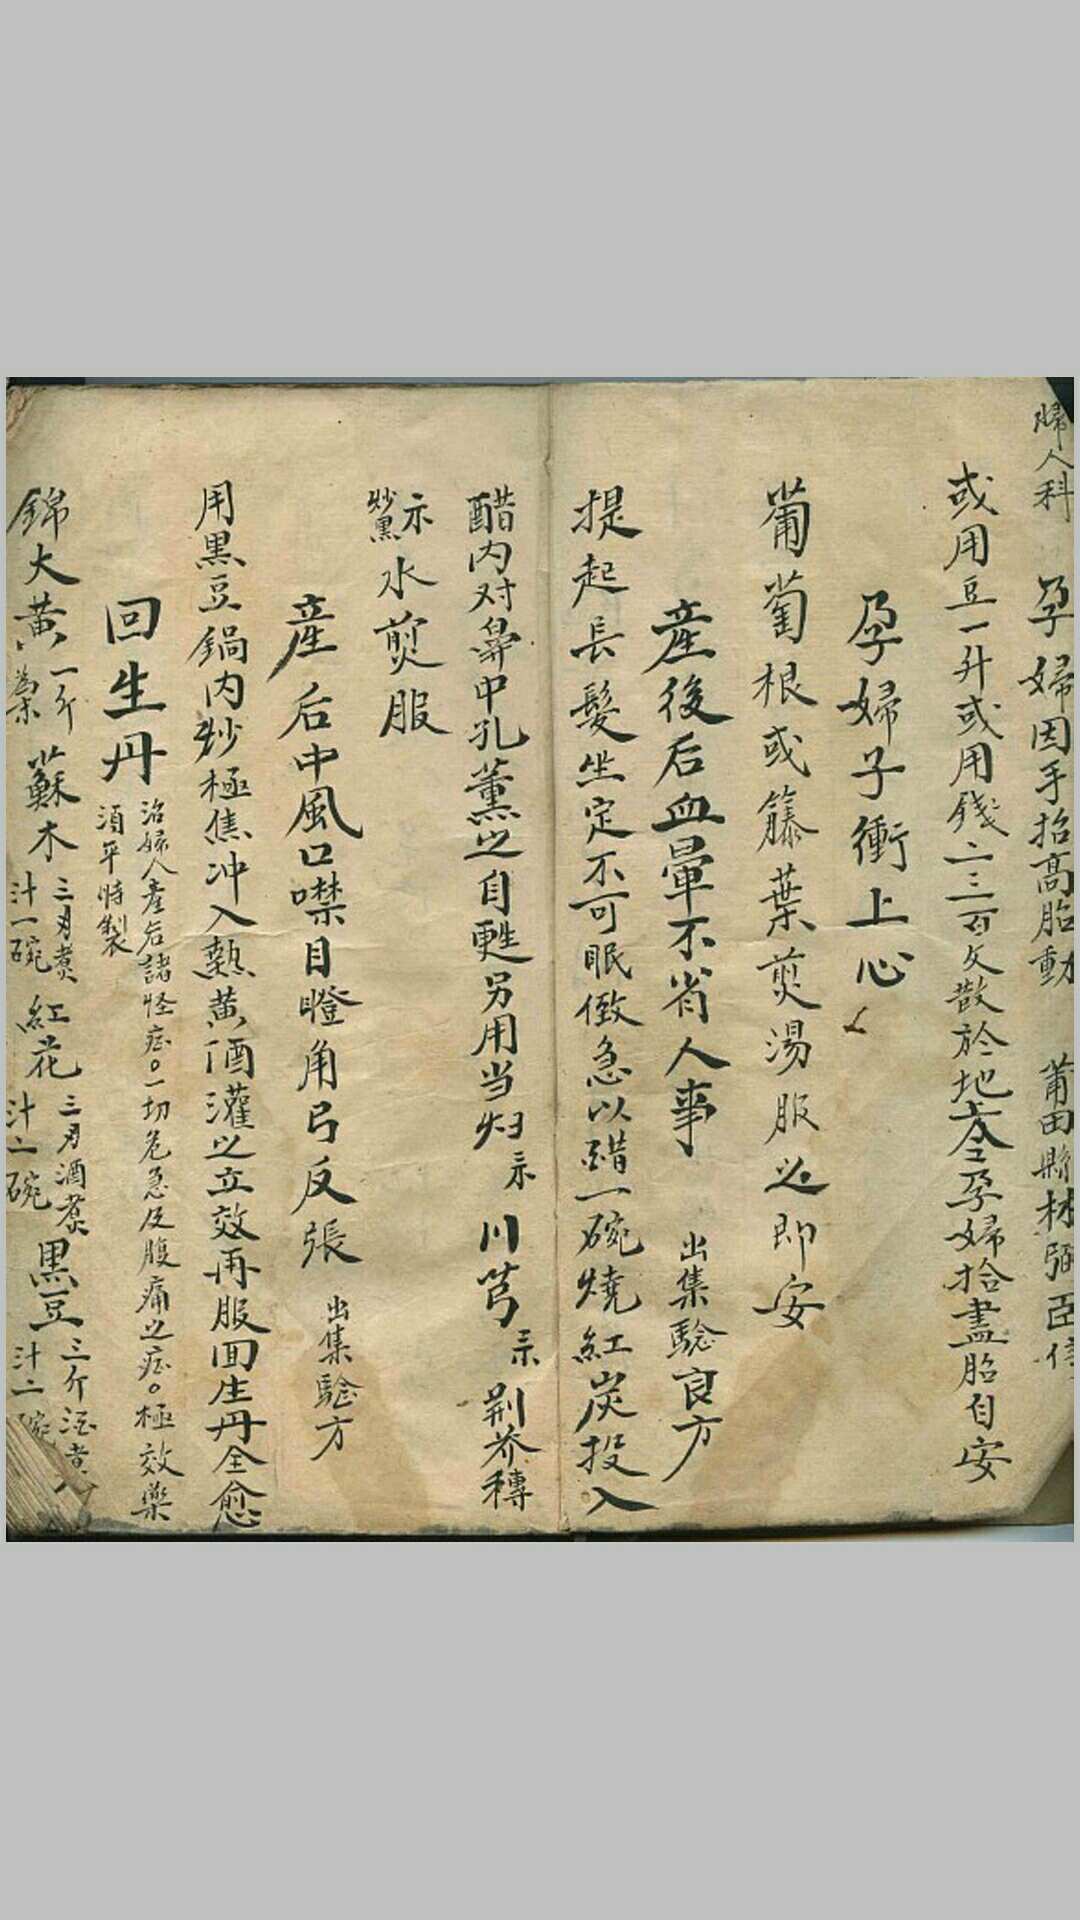 婦人科 孕婦因手抬高胎動 莆田縣林弼臣傳
或用豆一升或用錢二三百文散於地上令孕婦拾盡胎自安
孕婦子衝上心
葡萄根或籐葉煎湯服之即安
產後后血暈不省人事 出集驗良方
提起長髮坐定不可眠倒急以醋一碗燒紅炭投入
醋内对鼻中孔薰之自甦另用当归三錢 川芎三錢 荆芥穗
錢炒黑水煎服
產后中風口噤目瞪角弓反張 出集驗方
用黒豆鍋内炒極焦冲入熱黄酒灌之立效再服回生丹全愈
回生丹 治婦人產后諸怪症。一切危急及腹痛之症。極效藥
須平時製
錦大黄一斤為末 蘇木三两煮汁一碗 紅花三两酒煮汁二碗 黒豆三斤酒煮汁二碗